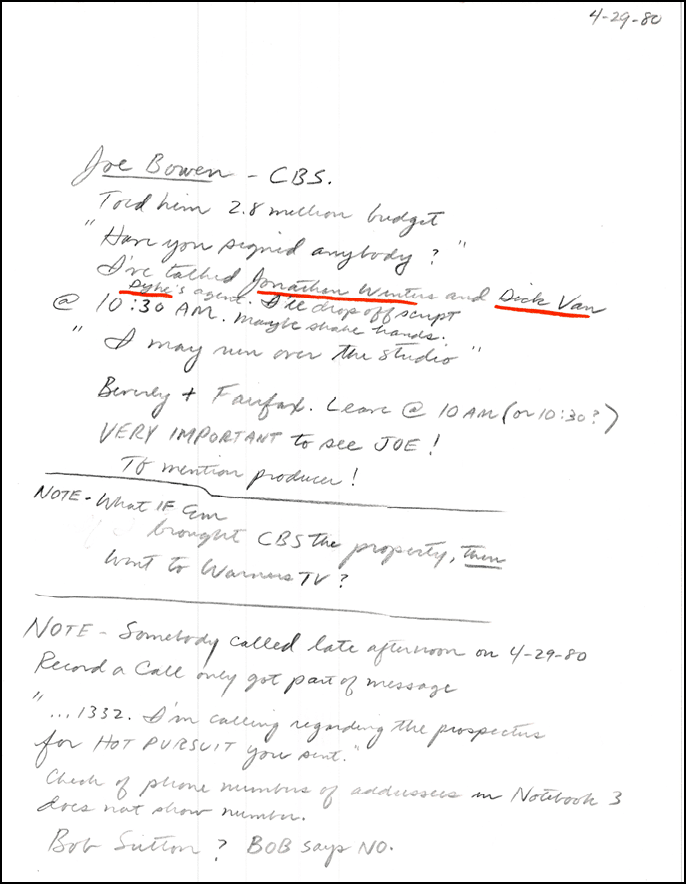 4-29-80
Joe Bowen - CBS.
Told him 2.8 million budget
"Have you signed anybody?"
I've talked Jonathan Winters and Dick Van
Dyke's agent. I'll drop off script
@ 10:30 AM. Maybe shake hands.
"I may run over the studio"
Beverly + Fairfax. Leave @ 10 AM (or 10:30?)
VERY IMPORTANT to see JOE!
To mention producer!
NOTE - What IF Em
brought CBS the property, then
went to Warners TV?
NOTE - Somebody called late afternoon on 4-29-80
Record a Call only got part of message
"...1332. I'm calling regarding the prospectus
for HOT PURSUIT you sent."
Check of phone numbers of addressees in Notebook 3
does not show number.
Bob Sutton? BOB says NO.